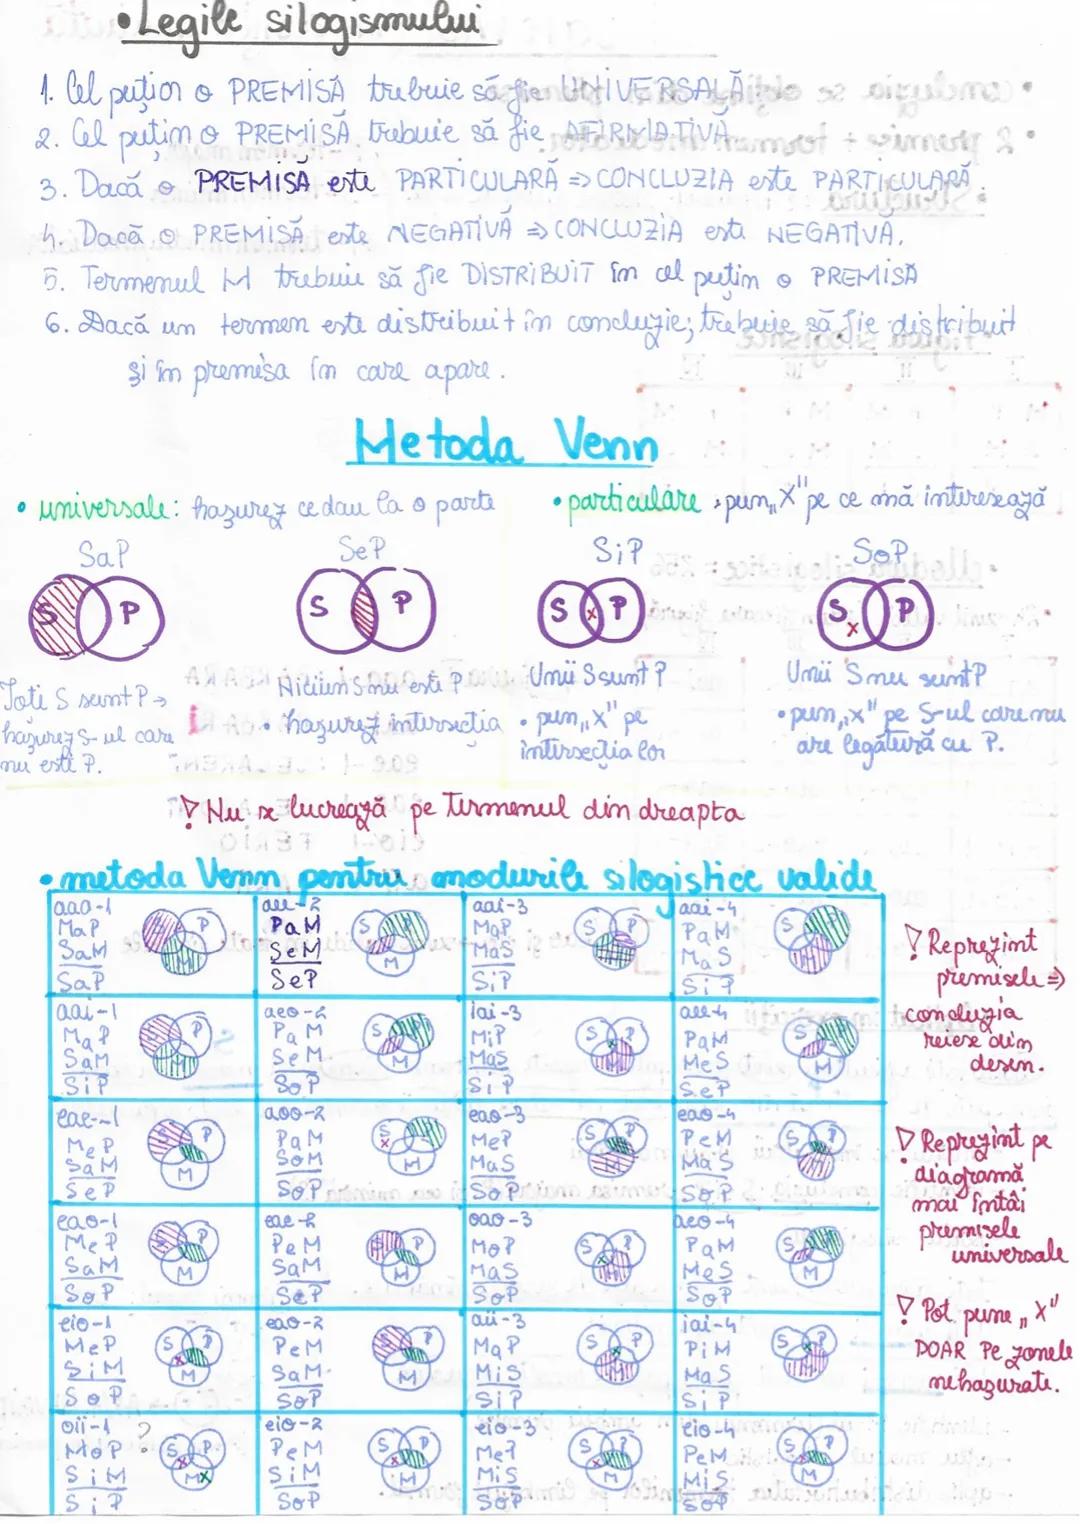 •Legile silogismului
1. Cel puțin o PREMISĂ trebuie să fie UNIVERSALĂ
2. Cel puțin o PREMISĂ trebuie să fie AFIRMATIVĂ
3. Dacă o PREMISĂ este PARTICULARĂ => CONCLUZIA este PARTICULARĂ.
4. Dacă o PREMISĂ este NEGATIVĂ => CONCLUZIA este NEGATIVĂ.
5. Termenul M trebuie să fie DISTRIBUIT în cel puțin o PREMISĂ
6. Dacă un termen este distribuit în concluzie; trebuie să fie distribuit
și în premisa în care apare.
Metoda Venn
• universale: hașurez ce dau la o parte
• particulare, pun „X" pe ce mă interesează
SaP SeP SiP SoP
S P S P S x P S x P
Toți S sunt P →
hașurez S-ul care
nu este P.
Niciun S nu este P
• hașurez intersecția
Unii S sunt P
• pun „x" pe
intersecția lor
Unii S nu sunt P
• pun „x" pe S-ul care nu
are legătură cu P.
! Nu se lucrează pe Termenul din dreapta
• metoda Venn pentru modurile silogistice valide
aaa-1
MaP
SaM
SaP
S P M
aee-2
PaM
SeM
SeP
S P M
aai-3
MaP
MaS
SiP
S P
aai-4
PaM
MaS
SiP
S M
aai-1
MaP
SaM
SiP
P M
aeo-2
PaM
SeM
SoP
S M
iai-3
MiP
MaS
SiP
S P
aee-4
PaM
MeS
SeP
S M
eae-1
MeP
SaM
SeP
S P M
aoo-2
PaM
SoM
SoP
S x M
eao-3
MeP
MaS
SoP
S P
eao-4
PeM
MaS
SoP
S P
eao-1
MeP
SaM
SoP
S P M
eae-2
PeM
SaM
SeP
P M
oao-3
MoP
MaS
SoP
S P
aeo-4
PaM
MeS
SoP
S M
eio-1
MeP
SiM
SoP
S P x M
eao-2
PeM
SaM
SoP
P M
aii-3
MaP
MiS
SiP
S P
iai-4
PiM
MaS
SiP
S P
oii-1
MoP
SiM
SiP
?
S x P M x
eio-2
PeM
SiM
SoP
S P x M
eio-3
MeP
MiS
SoP
S P x M
eio-4
PeM
MiS
SoP
S P x M
! Reprezint
premisele =>
concluzia
reiese din
desen.
! Reprezint pe
diagramă
mai întâi
premisele
universale
! Pot pune „X"
DOAR Pe zonele
nehașurate.